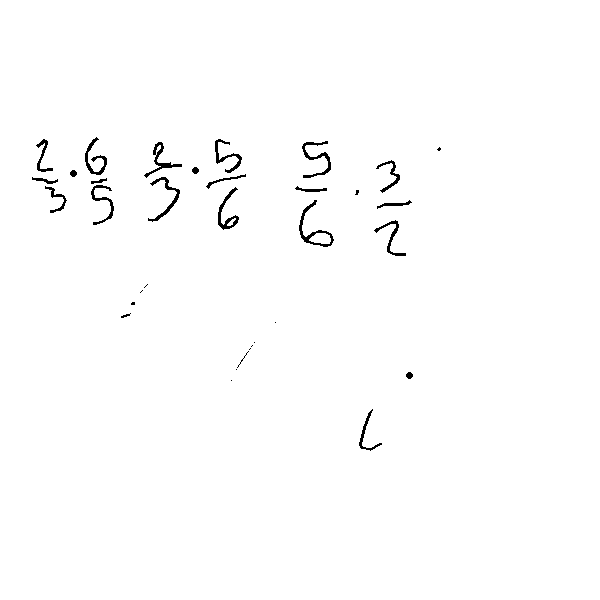 2/3 · 6/5  2/3 · 5/6  5/6 · 3/2